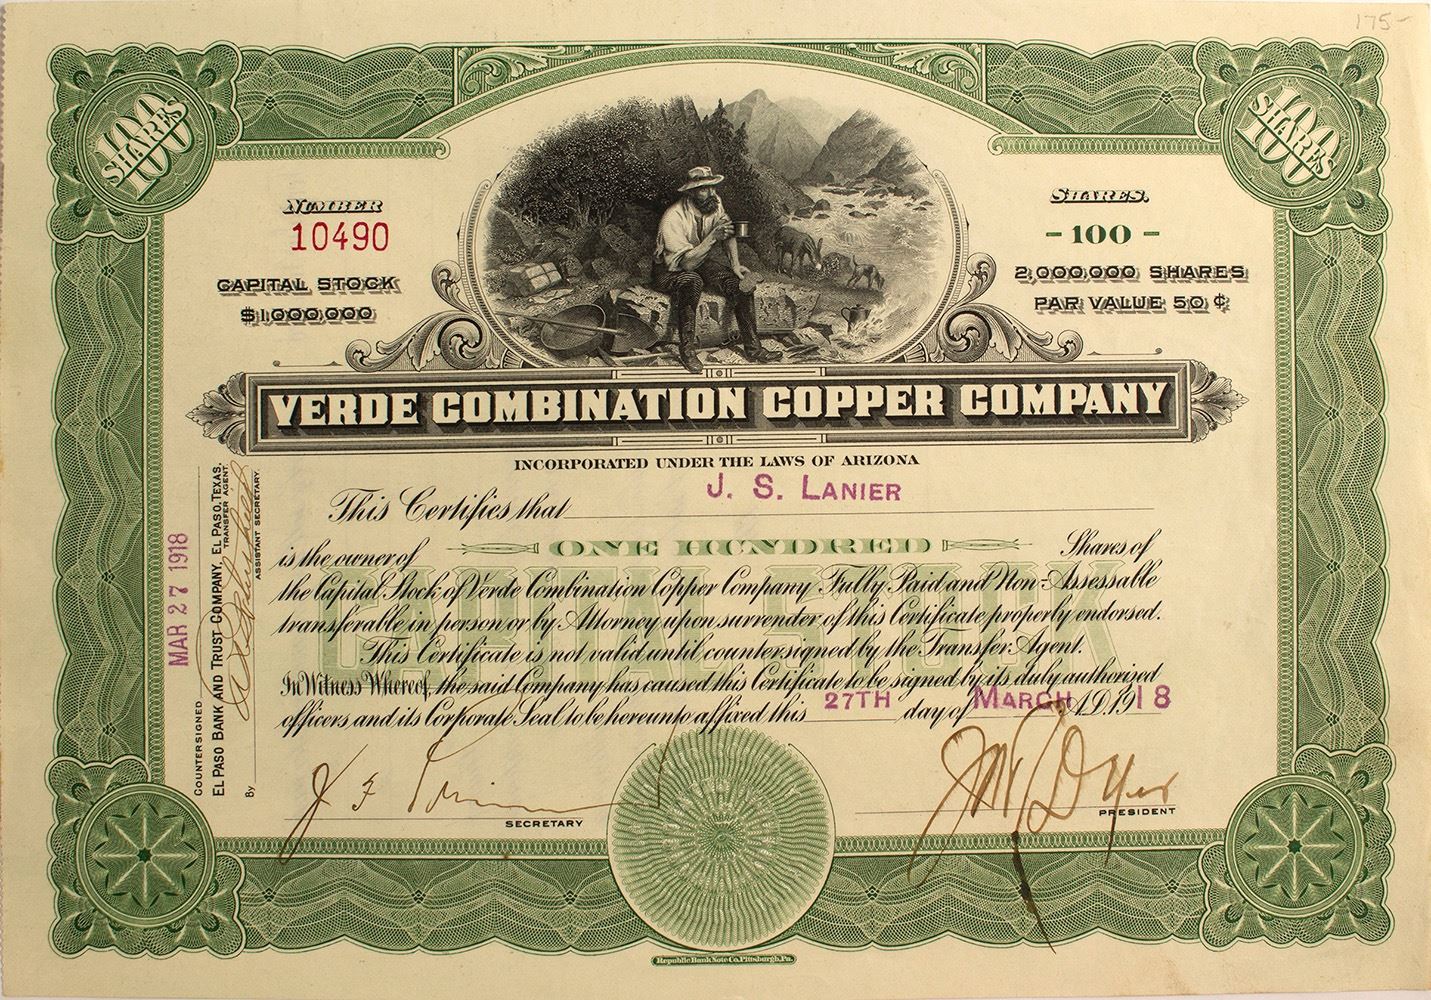 175-
100 SHARES
100 SHARES
NUMBER
10490
CAPITAL STOCK
$1,000,000
SHARES.
- 100 -
2,000,000 SHARES
PAR VALUE 50 ¢
VERDE COMBINATION COPPER COMPANY
INCORPORATED UNDER THE LAWS OF ARIZONA
This Certifies that J. S. LANIER
is the owner of ONE HUNDRED Shares of
the Capital Stock of Verde Combination Copper Company Fully Paid and Non-Assessable
transferable in person or by Attorney upon surrender of this Certificate properly endorsed.
This Certificate is not valid until countersigned by the Transfer Agent.
In Witness Whereof, the said Company has caused this Certificate to be signed by its duly authorised
officers and its Corporate Seal to be hereunto affixed this 27TH day of MARCH A.D. 1918
CAPITAL STOCK
MAR 27 1918
COUNTERSIGNED
EL PASO BANK AND TRUST COMPANY, EL PASO, TEXAS.
TRANSFER AGENT.
By
ASSISTANT SECRETARY.
J F
SECRETARY
Dyer
PRESIDENT
Republic Bank Note Co. Pittsburgh, Pa.